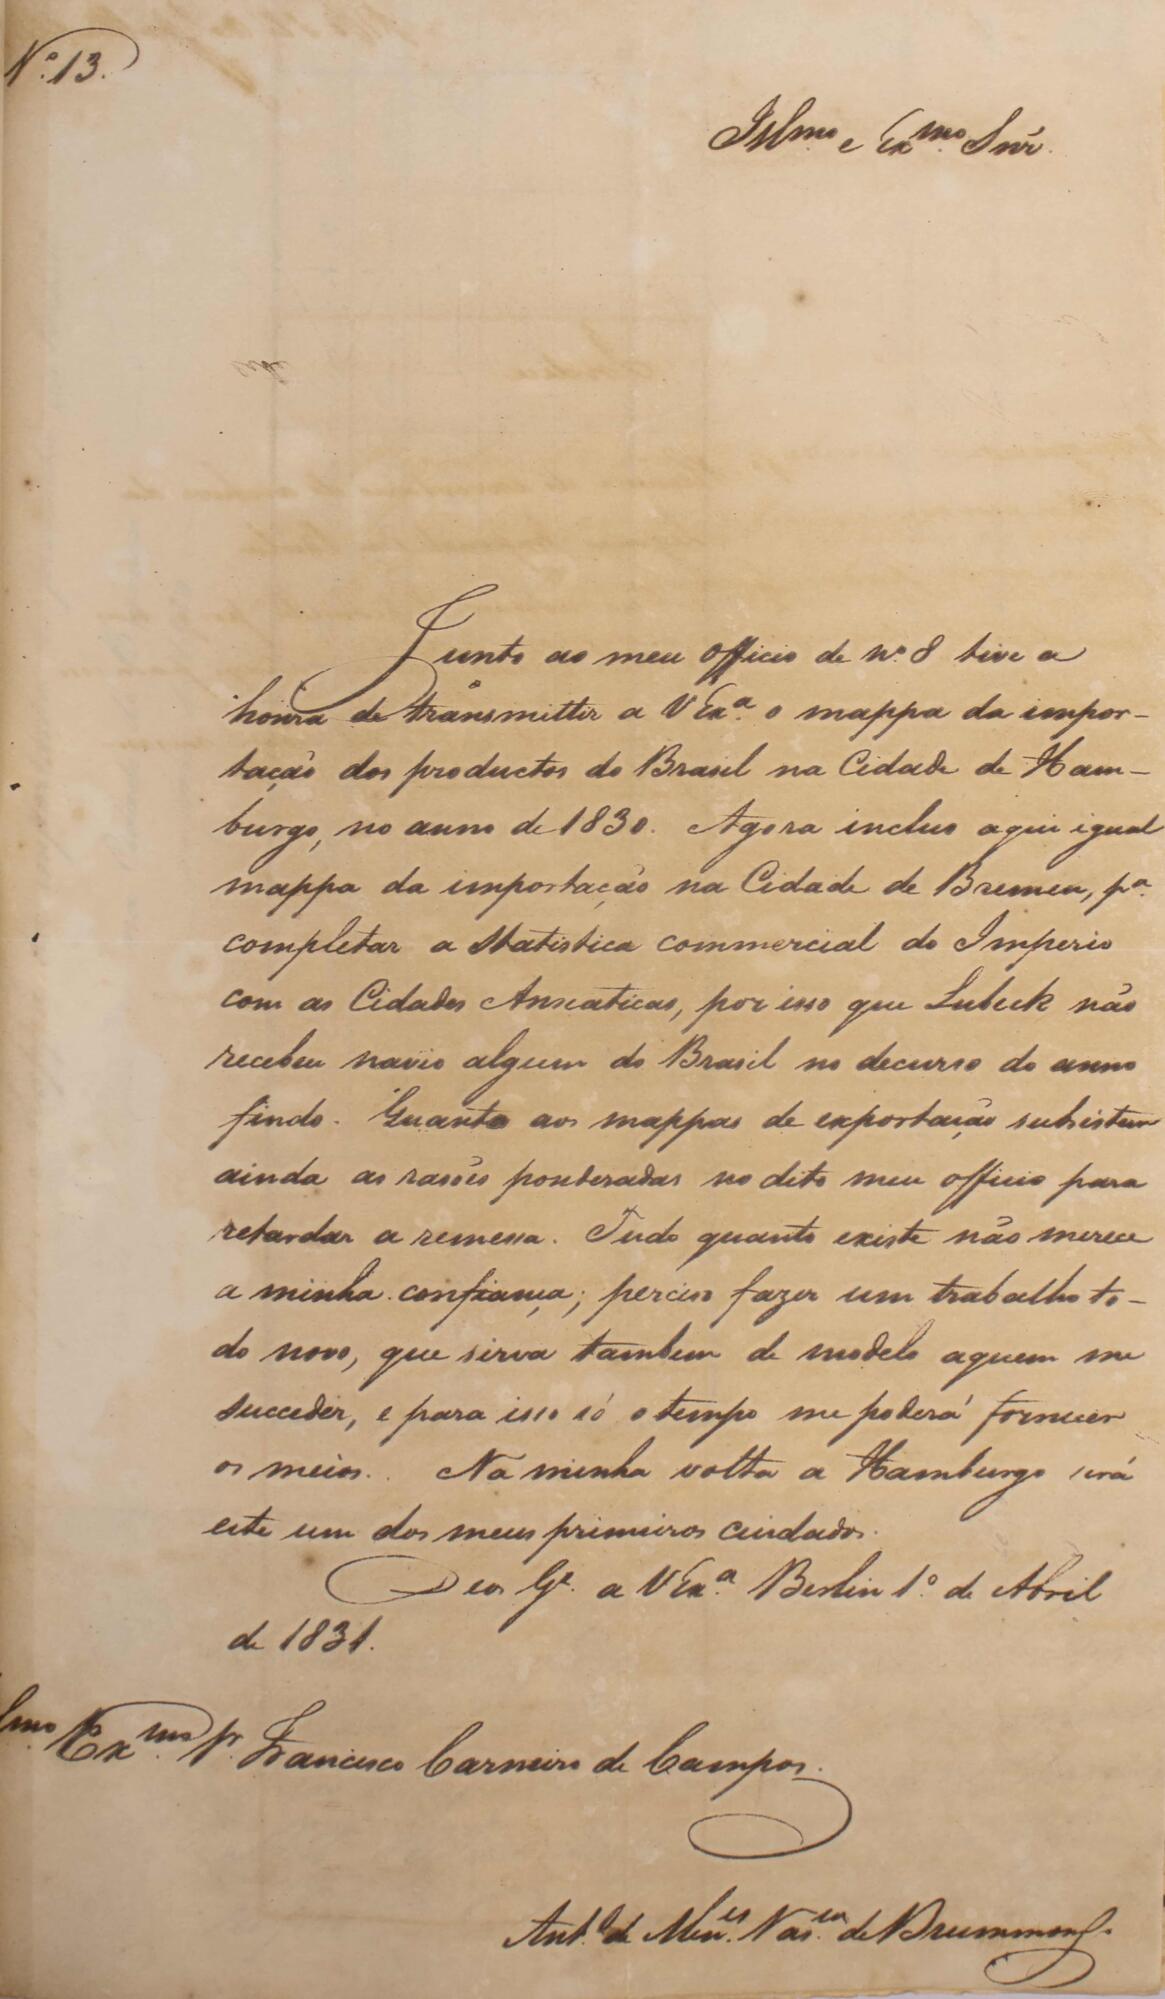 Nº 13.
Illmo. e Exmo. Snr.
Junto ao meu officio de nº 8 tive a
honra de transmittir a V Exa. o mappa da impor-
tação dos productos do Brasil na Cidade de Ham-
burgo, no anno de 1830. Agora incluo aqui igual
mappa da importação na Cidade de Bremen, pa.
completar a statistica commercial do Imperio
com as Cidades Anseaticas, por isso que Lubeck não
recebeu navio algum do Brasil no decurso do anno
findo. Quanto aos mappas de exportação subsistem
ainda as rasões ponderadas no dito meu officio para
retardar a remessa. Tudo quanto existe não merece
a minha confiança; perciso fazer um trabalho to-
do novo, que sirva tambem de modelo aquem me
succeder, e para isso só o tempo me poderá fornecer
os meios. Na minha volta a Hamburgo será
este um dos meus primeiros cuidados.
Deos Ge. a V Exa. Berlin 1º de Abril
de 1831.
Illmo. Exmo. Sr. Francisco Carneiro de Campos.
Anto. de Menes. Vasos. de Drummond.